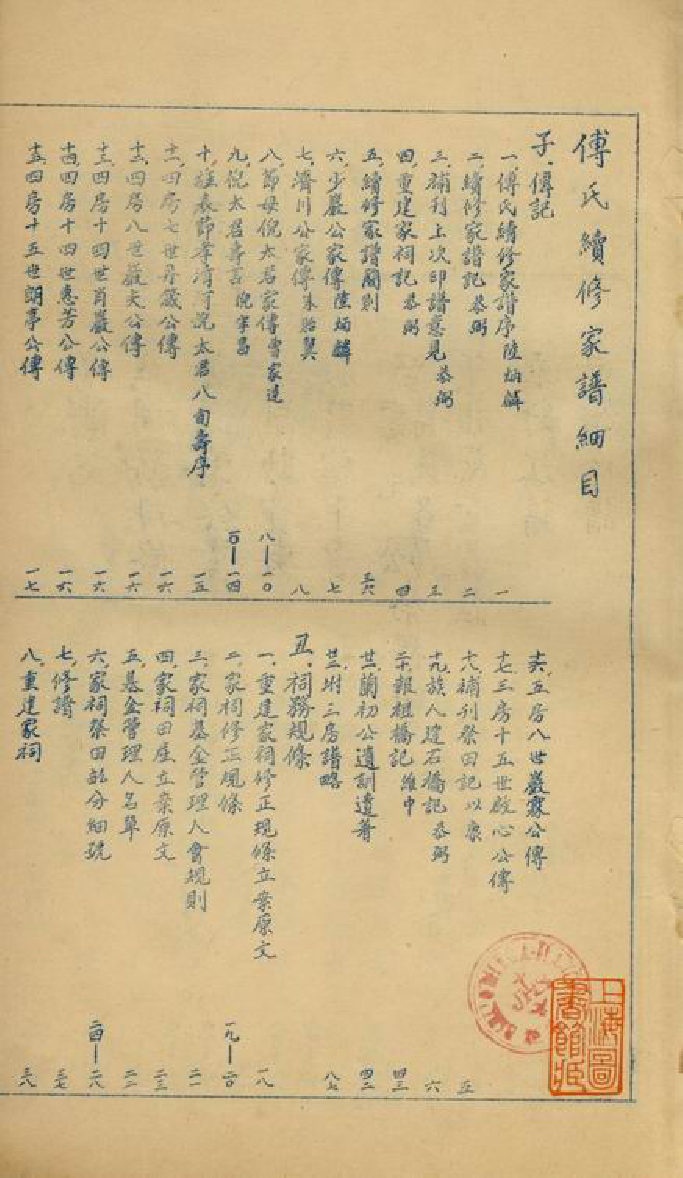 傅氏續修家譜細目
子、傳記
一、傅氏續修家譜序 陸炳麟 一
二、續修家譜記 恭弼 二
三、補刊上次印譜意見 恭弼 三
四、重建家祠記 恭弼 四
五、續修家譜簡則
六、少巖公家傳 陸炳麟 七
七、濟川公家傳 朱貽㷩 八
八、節母倪太君家傳 曹家達 八—一〇
九、倪太君壽言 倪 一〇—一四
十、旌表節孝清 倪太君八旬壽序 一五
十一、四房七世丹巖公傳 一六
十二、四房八世巖夫公傳 一六
十三、四房十四世肖巖公傳 一六
十四、四房十四世蕙芳公傳 一六
十五、四房十五世朗亭公傳 一七
十六、五房八世巖霖公傳
十七、三房十五世啟心公傳
十八、補刊祭田記 以康 五
十九、族人建石橋記 恭弼 六
二十、報祖橋記 維中 四三
廿一、蘭初公遺訓遺著 四二
廿二、坿三房譜略 八七
丑、祠務規條
一、重建家祠修正規條立案原文 一八
二、家祠修正規條 一九—二〇
三、家祠基金管理人會規則 二一
四、家祠田產立案原文 二三
五、基金管理人名單 二二
六、家祠祭田畝分細號 二四—二八
七、修譜 三七
八、重建家祠 三八
上海圖書館藏